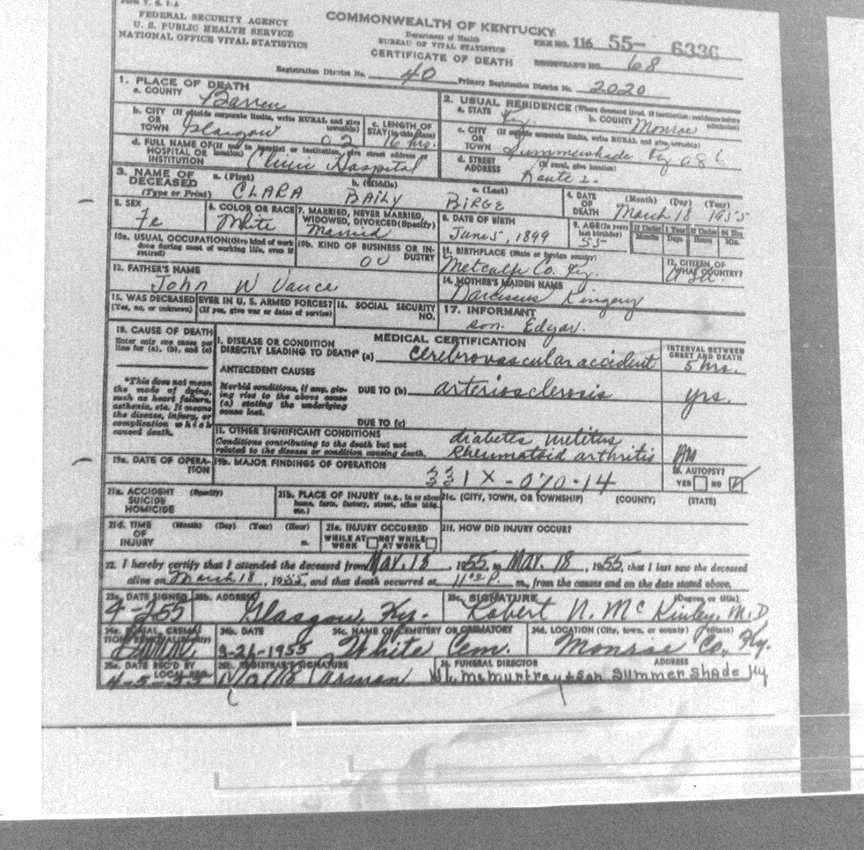 Form V. S. 1-A
FEDERAL SECURITY AGENCY
U. S. PUBLIC HEALTH SERVICE
NATIONAL OFFICE VITAL STATISTICS
COMMONWEALTH OF KENTUCKY
Department of Health
BUREAU OF VITAL STATISTICS
CERTIFICATE OF DEATH
FILE NO. 116 55- 6336
REGISTRAR'S NO. 68
Registration District No. 40 Primary Registration District No. 2020
1. PLACE OF DEATH
a. COUNTY Barren
b. CITY (If outside corporate limits, write RURAL and give township)
OR TOWN Glasgow 02
c. LENGTH OF STAY (in this place) 16 hrs.
d. FULL NAME OF (If not in hospital or institution, give street address or location)
HOSPITAL OR INSTITUTION Clinic Hospital
2. USUAL RESIDENCE (Where deceased lived. If institution: residence before admission)
a. STATE Ky. b. COUNTY Monroe
c. CITY (If outside corporate limits, write RURAL and give township)
OR TOWN Summershade Ky
d. STREET ADDRESS (If rural, give location) Route 2.
3. NAME OF DECEASED (Type or Print)
a. (First) CLARA b. (Middle) BAILY c. (Last) BIRGE
4. DATE OF DEATH (Month) (Day) (Year) March 18 1955
5. SEX Fe
6. COLOR OR RACE White
7. MARRIED, NEVER MARRIED, WIDOWED, DIVORCED (Specify) Married
8. DATE OF BIRTH June 5, 1899
9. AGE (In years last birthday) 55 If Under 1 Year Months Days If Under 24 Hrs. Hours Min.
10a. USUAL OCCUPATION (Give kind of work done during most of working life, even if retired)
10b. KIND OF BUSINESS OR INDUSTRY
11. BIRTHPLACE (State or foreign country) Metcalfe Co. Ky.
12. CITIZEN OF WHAT COUNTRY?
13. FATHER'S NAME John W Vance
14. MOTHER'S MAIDEN NAME Narcissus Kingery
15. WAS DECEASED EVER IN U. S. ARMED FORCES?
(Yes, no, or unknown) (If yes, give war or dates of service)
16. SOCIAL SECURITY NO.
17. INFORMANT son Edgar.
18. CAUSE OF DEATH
Enter only one cause per line for (a), (b), and (c)
*This does not mean the mode of dying, such as heart failure, asthenia, etc. It means the disease, injury, or complication which caused death.
MEDICAL CERTIFICATION
INTERVAL BETWEEN ONSET AND DEATH
I. DISEASE OR CONDITION DIRECTLY LEADING TO DEATH* (a) Cerebrovascular accident 5 hrs.
ANTECEDENT CAUSES
Morbid conditions, if any, giving rise to the above cause (a) stating the underlying cause last.
DUE TO (b) arteriosclerosis yrs.
DUE TO (c)
II. OTHER SIGNIFICANT CONDITIONS
Conditions contributing to the death but not related to the disease or condition causing death.
diabetes melitus
Rheumatoid arthritis
19a. DATE OF OPERATION
19b. MAJOR FINDINGS OF OPERATION
331X-070-14
20. AUTOPSY? YES NO
21a. ACCIDENT SUICIDE HOMICIDE (Specify)
21b. PLACE OF INJURY (e.g., in or about home, farm, factory, street, office bldg., etc.)
21c. (CITY, TOWN, OR TOWNSHIP) (COUNTY) (STATE)
21d. TIME OF INJURY (Month) (Day) (Year) (Hour) m.
21e. INJURY OCCURRED WHILE AT WORK NOT WHILE AT WORK
21f. HOW DID INJURY OCCUR?
22. I hereby certify that I attended the deceased from Mar. 18, 1955 to Mar. 18, 1955, that I last saw the deceased
alive on March 18, 1955, and that death occurred at m., from the causes and on the date stated above.
23a. DATE SIGNED 4-255
23b. ADDRESS Glasgow, Ky.
23c. SIGNATURE (Degree or title) Robert N. McKinley, M.D
24a. BURIAL, CREMATION, REMOVAL (Specify) Burial
24b. DATE 3-21-1955
24c. NAME OF CEMETERY OR CREMATORY White Cem.
24d. LOCATION (City, town, or county) (State) Monroe Co., Ky.
25a. DATE REC'D BY LOCAL REG. 4-5-55
25b. REGISTRAR'S SIGNATURE
26. FUNERAL DIRECTOR ADDRESS
McMurtrey & son Summer Shade Ky